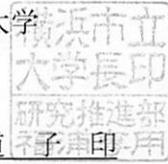 大学
横浜市立
大学長印
研究推進部
子 印